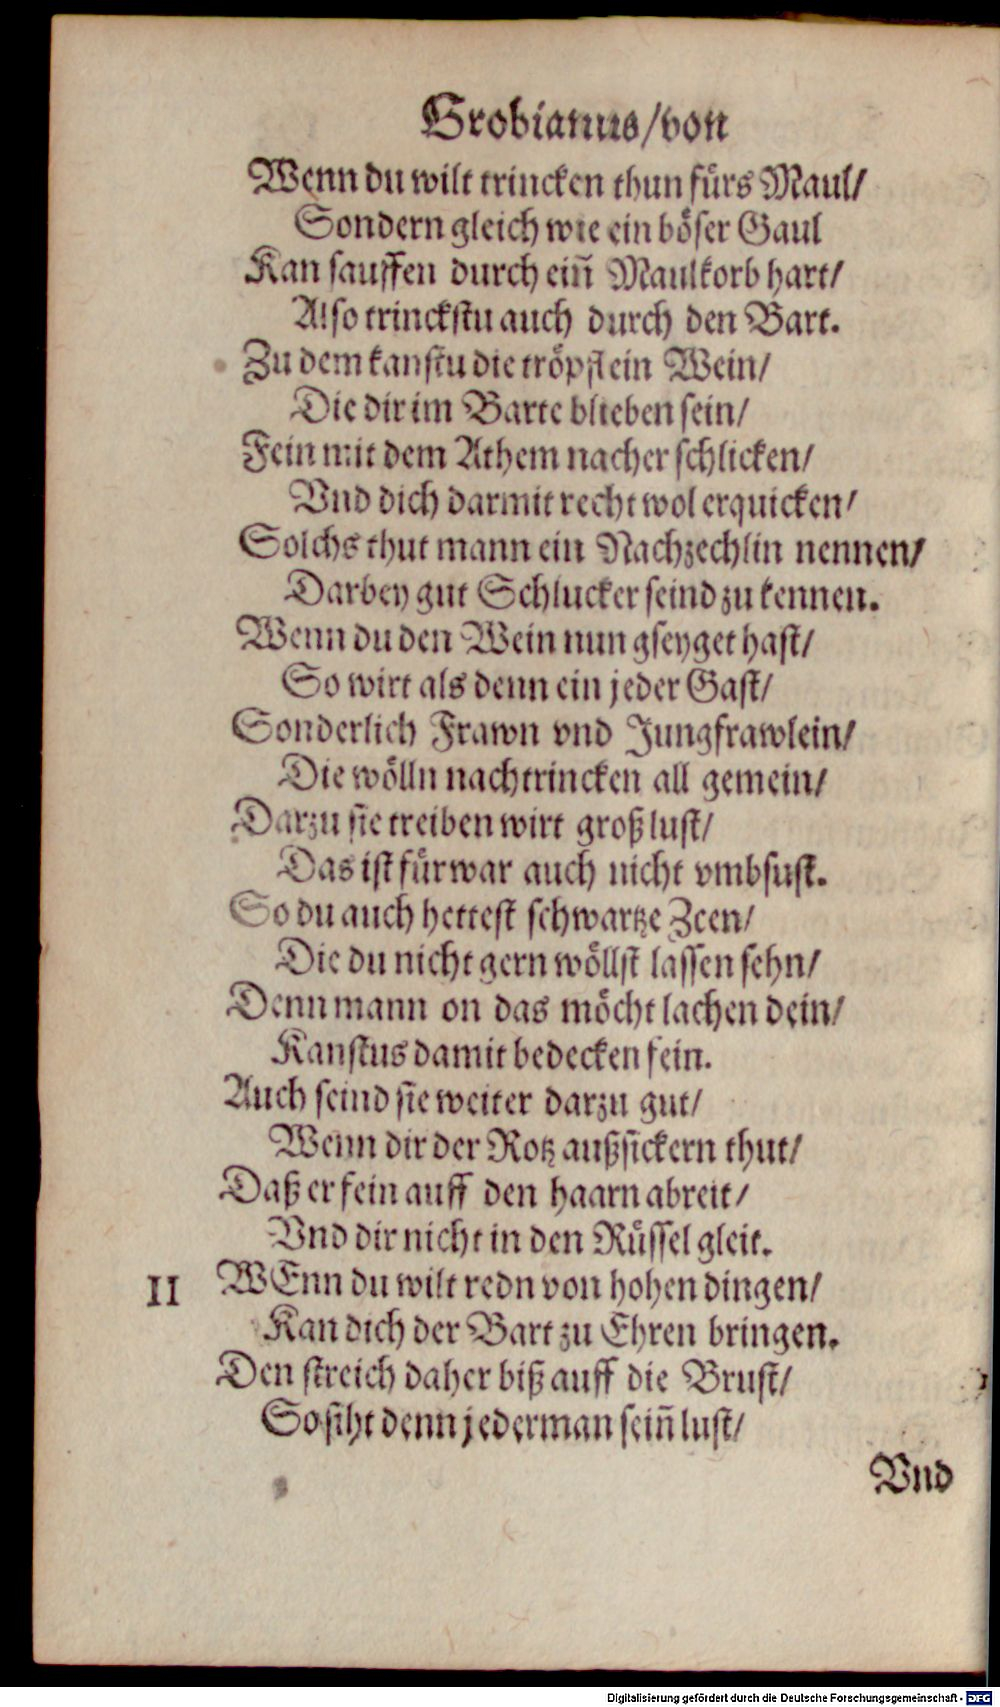 Grobianus/von
Wenn du wilt trincken thun fürs Maul/
Sondern gleich wie ein böser Gaul
Kan sauffen durch ein̄ Maulkorb hart/
Also trinckstu auch durch den Bart.
Zu dem kanstu die tröpflein Wein/
Die dir im Barte blieben sein/
Fein mit dem Athem nacher schlicken/
Vnd dich darmit recht wol erquicken/
Solchs thut mann ein Nachzechlin nennen/
Darbey gut Schlucker seind zu kennen.
Wenn du den Wein nun gseyget hast/
So wirt als denn ein jeder Gast/
Sonderlich Frawn vnd Jungfrawlein/
Die wölln nachtrincken all gemein/
Darzu sie treiben wirt groß lust/
Das ist fürwar auch nicht vmbsust.
So du auch hettest schwartze Zeen/
Die du nicht gern wöllst lassen sehn/
Denn mann on das möcht lachen dein/
Kanstus damit bedecken fein.
Auch seind sie weiter darzu gut/
Wenn dir der Rotz außsickern thut/
Daß er fein auff den haarn abreit/
Vnd dir nicht in den Rüssel gleit.
II WEnn du wilt redn von hohen dingen/
Kan dich der Bart zu Ehren bringen.
Den streich daher biß auff die Brust/
So siht denn jederman sein̄ lust/
Vnd
Digitalisierung gefördert durch die Deutsche Forschungsgemeinschaft - DFG